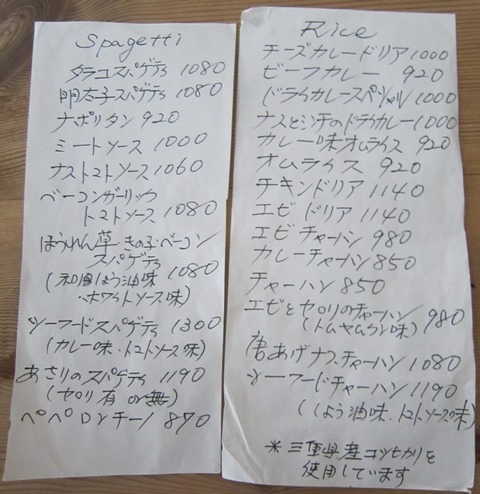 Spagetti
タラコスパゲティ 1080
明太子スパゲティ 1080
ナポリタン 920
ミートソース 1000
ナストマトソース 1060
ベーコンガーリック
トマトソース 1080
ほうれん草・きの子・ベーコン
スパゲティ 1080
(和風しょう油味
・ホワイトソース味)
シーフードスパゲティ 1300
(カレー味・トマトソース味)
あさりのスパゲティ 1190
(セロリ有 or 無)
ペペロンチーノ 870
Rice
チーズカレードリア 1000
ビーフカレー 920
ドライカレースペシャル 1000
ナスとシシトウのドライカレー 1000
カレー味オムライス 920
オムライス 920
チキンドリア 1140
エビドリア 1140
エビチャーハン 980
カレーチャーハン 850
チャーハン 850
エビとセロリのチャーハン 980
(トムヤムクン味)
唐あげナスチャーハン 1080
シーフードチャーハン 1190
(しょう油味・トマトソース味)
* 三重県産コシヒカリを
使用しています